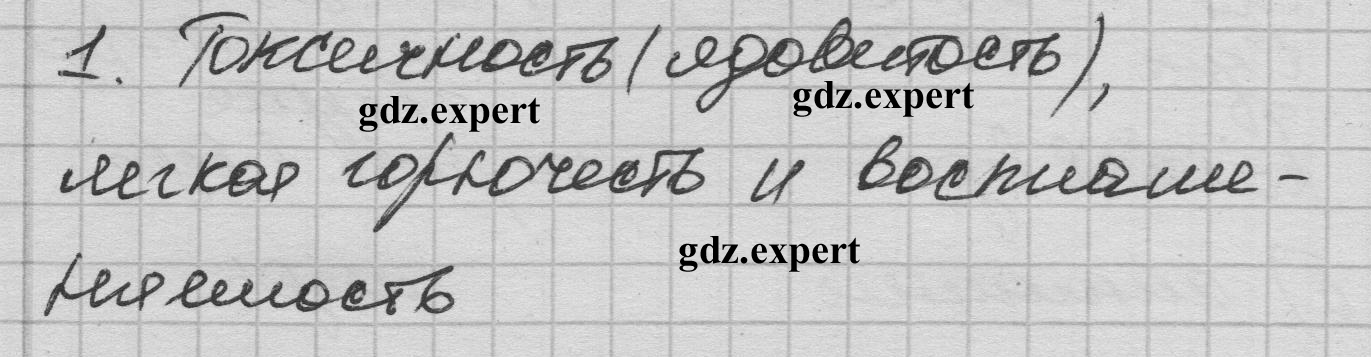 1. Токсичность (ядовитость),
gdz.expert gdz.expert
легкая горючесть и воспламе-
gdz.expert
няемость